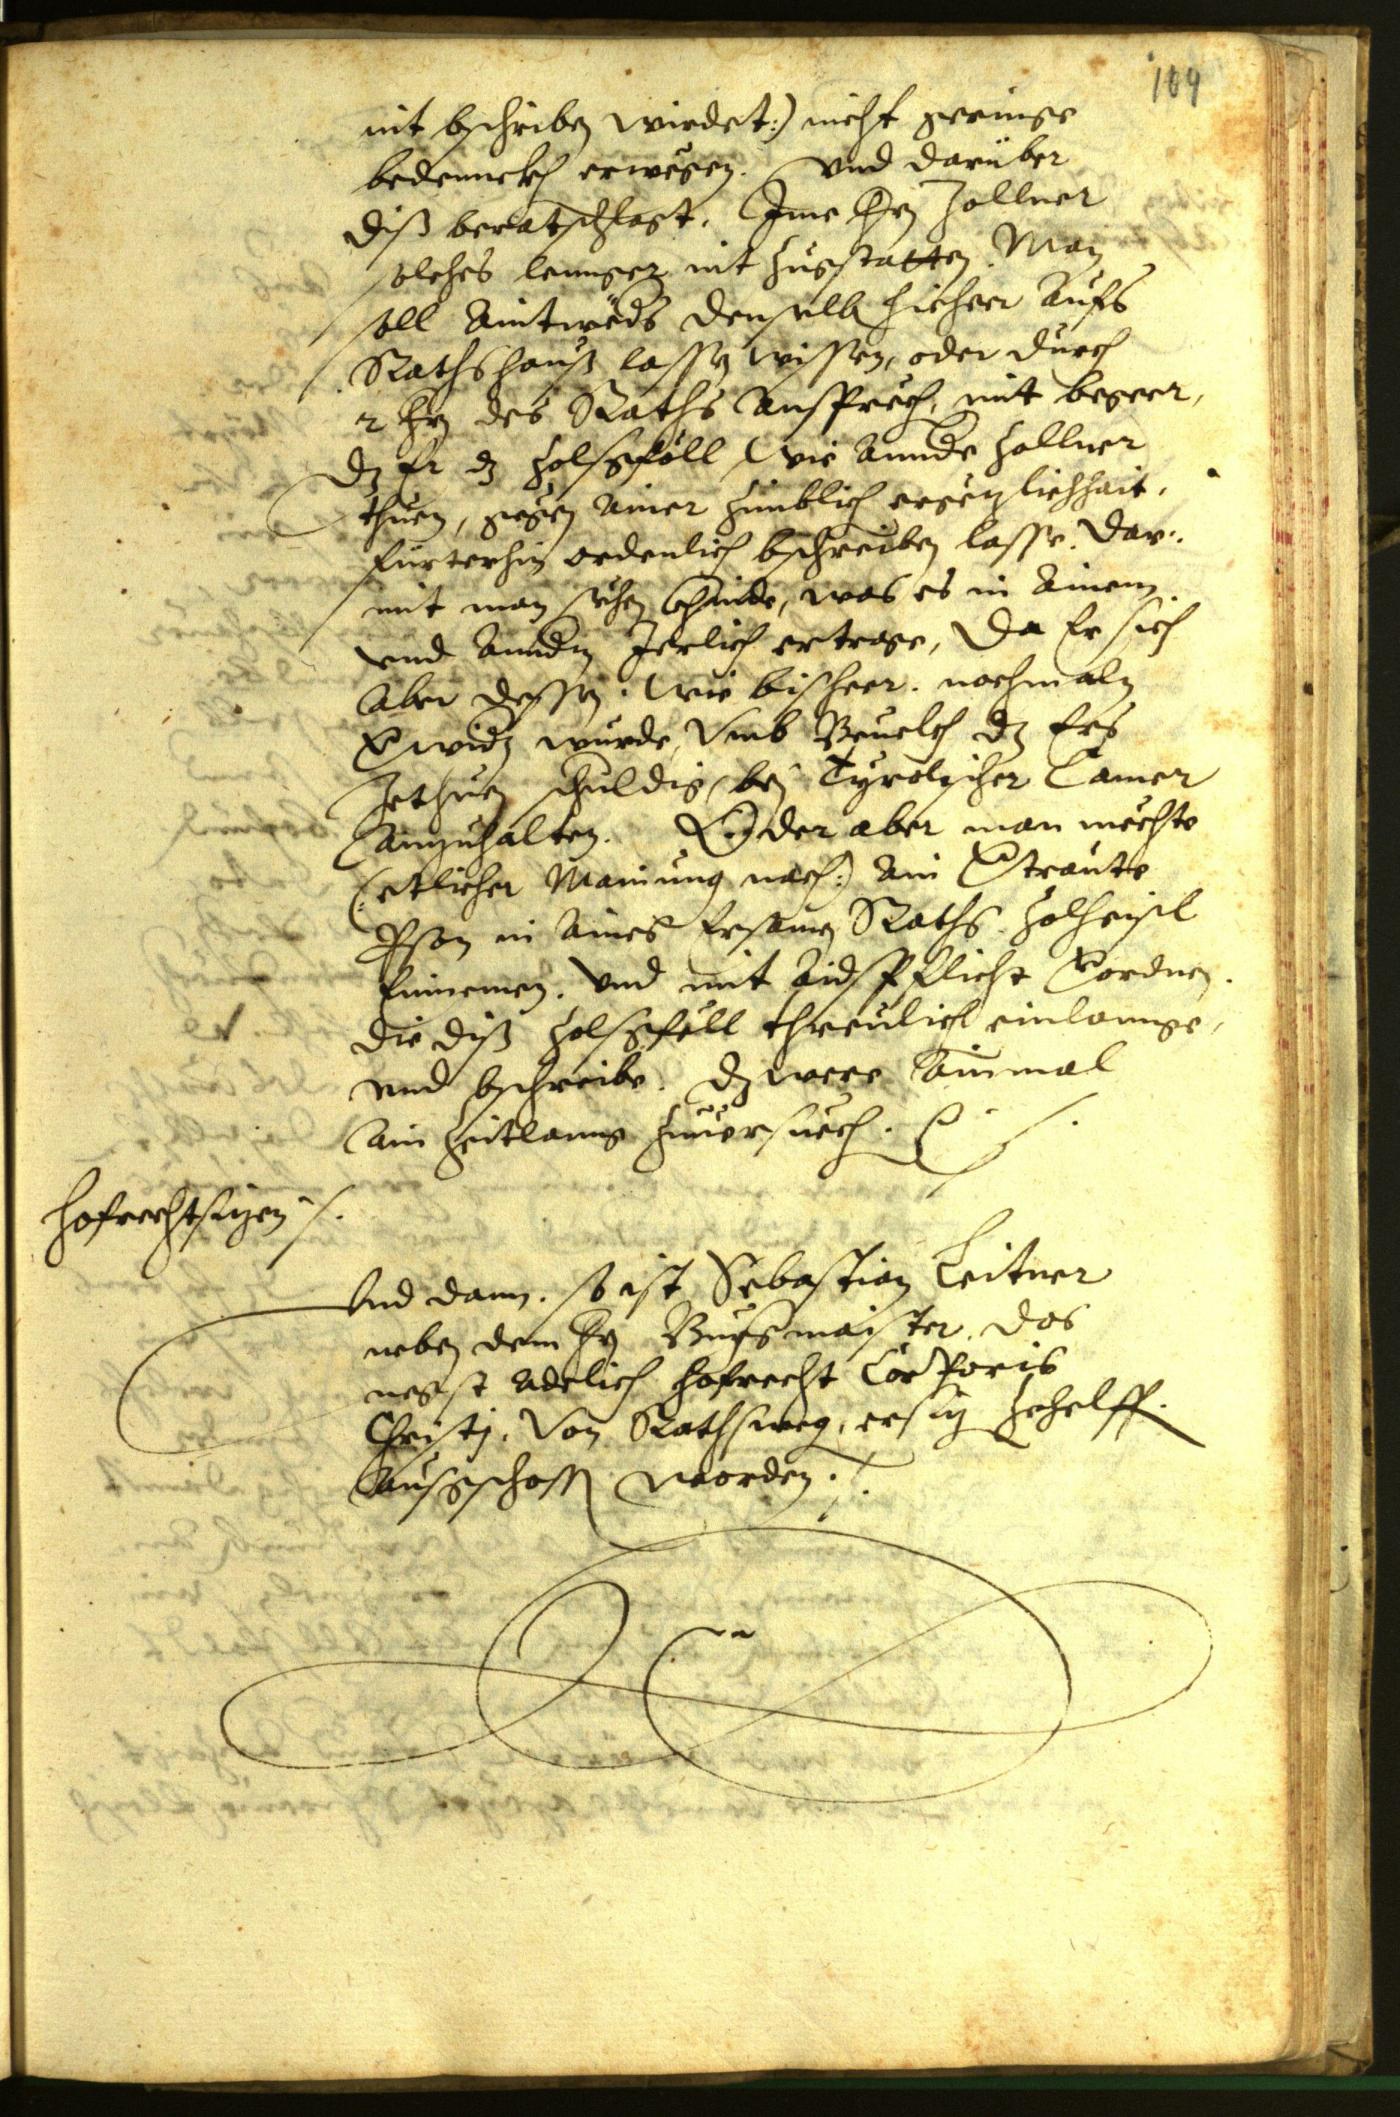 109
nit bschriben wirdet:) nicht geringe
bedennckh erwegen. Vnd darüber
diß beratschlagt. Ime Hrn Zollner
solches lennger nit zugstatten. Man
soll aintweds denselb hieheer aufs
Rathshauß lassen wissen, oder durch
2 Hrn des Raths ansprech, mit begeer,
dz Er dz Zolsgföll wie annde Zollner
thuen, gegen ainer zimblich ergezlichhait,
fürterhin ordenlich bschreiben lasse. Dar:
mit man sehen khünde, was es in ainem
vnd anndn Jerlich ertrage, Da Er sich
aber dessen. wie bischeer. nochmaln
verwidn wurde, vmb Beuelch dz Ers
zethuen schuldig, bej Tyrolischer Camer
anzuhalten. Oder aber man mechte
(:etlicher Mainung nach:) ain vertraute
Person in aines Ersamen Raths Zolheisl
einnemen. Vnd mit aidspflicht verordnen.
die diß Zolsgföll threulich einlannge,
vnd bschreibe. dz were ainmal
ain Zeitlanng zuuersuech.
Hofrechtsizen
Vnd dann. so ist Sebastian Leitner
neben dem Hrn Burgmaister, das
negst adelich Hofrecht Corporis
Christj. Von Rathsweg, ersizn zehelffen
ausgschossn worden.